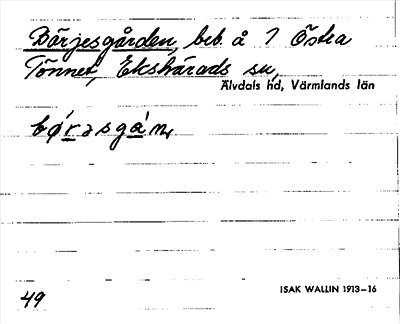 Börjesgården, beb. å 7 Östra
Tönnet, Ekshärads sn,
Älvdals hd, Värmlands län
bǿrəsgán,
49
ISAK WALLIN 1913–16